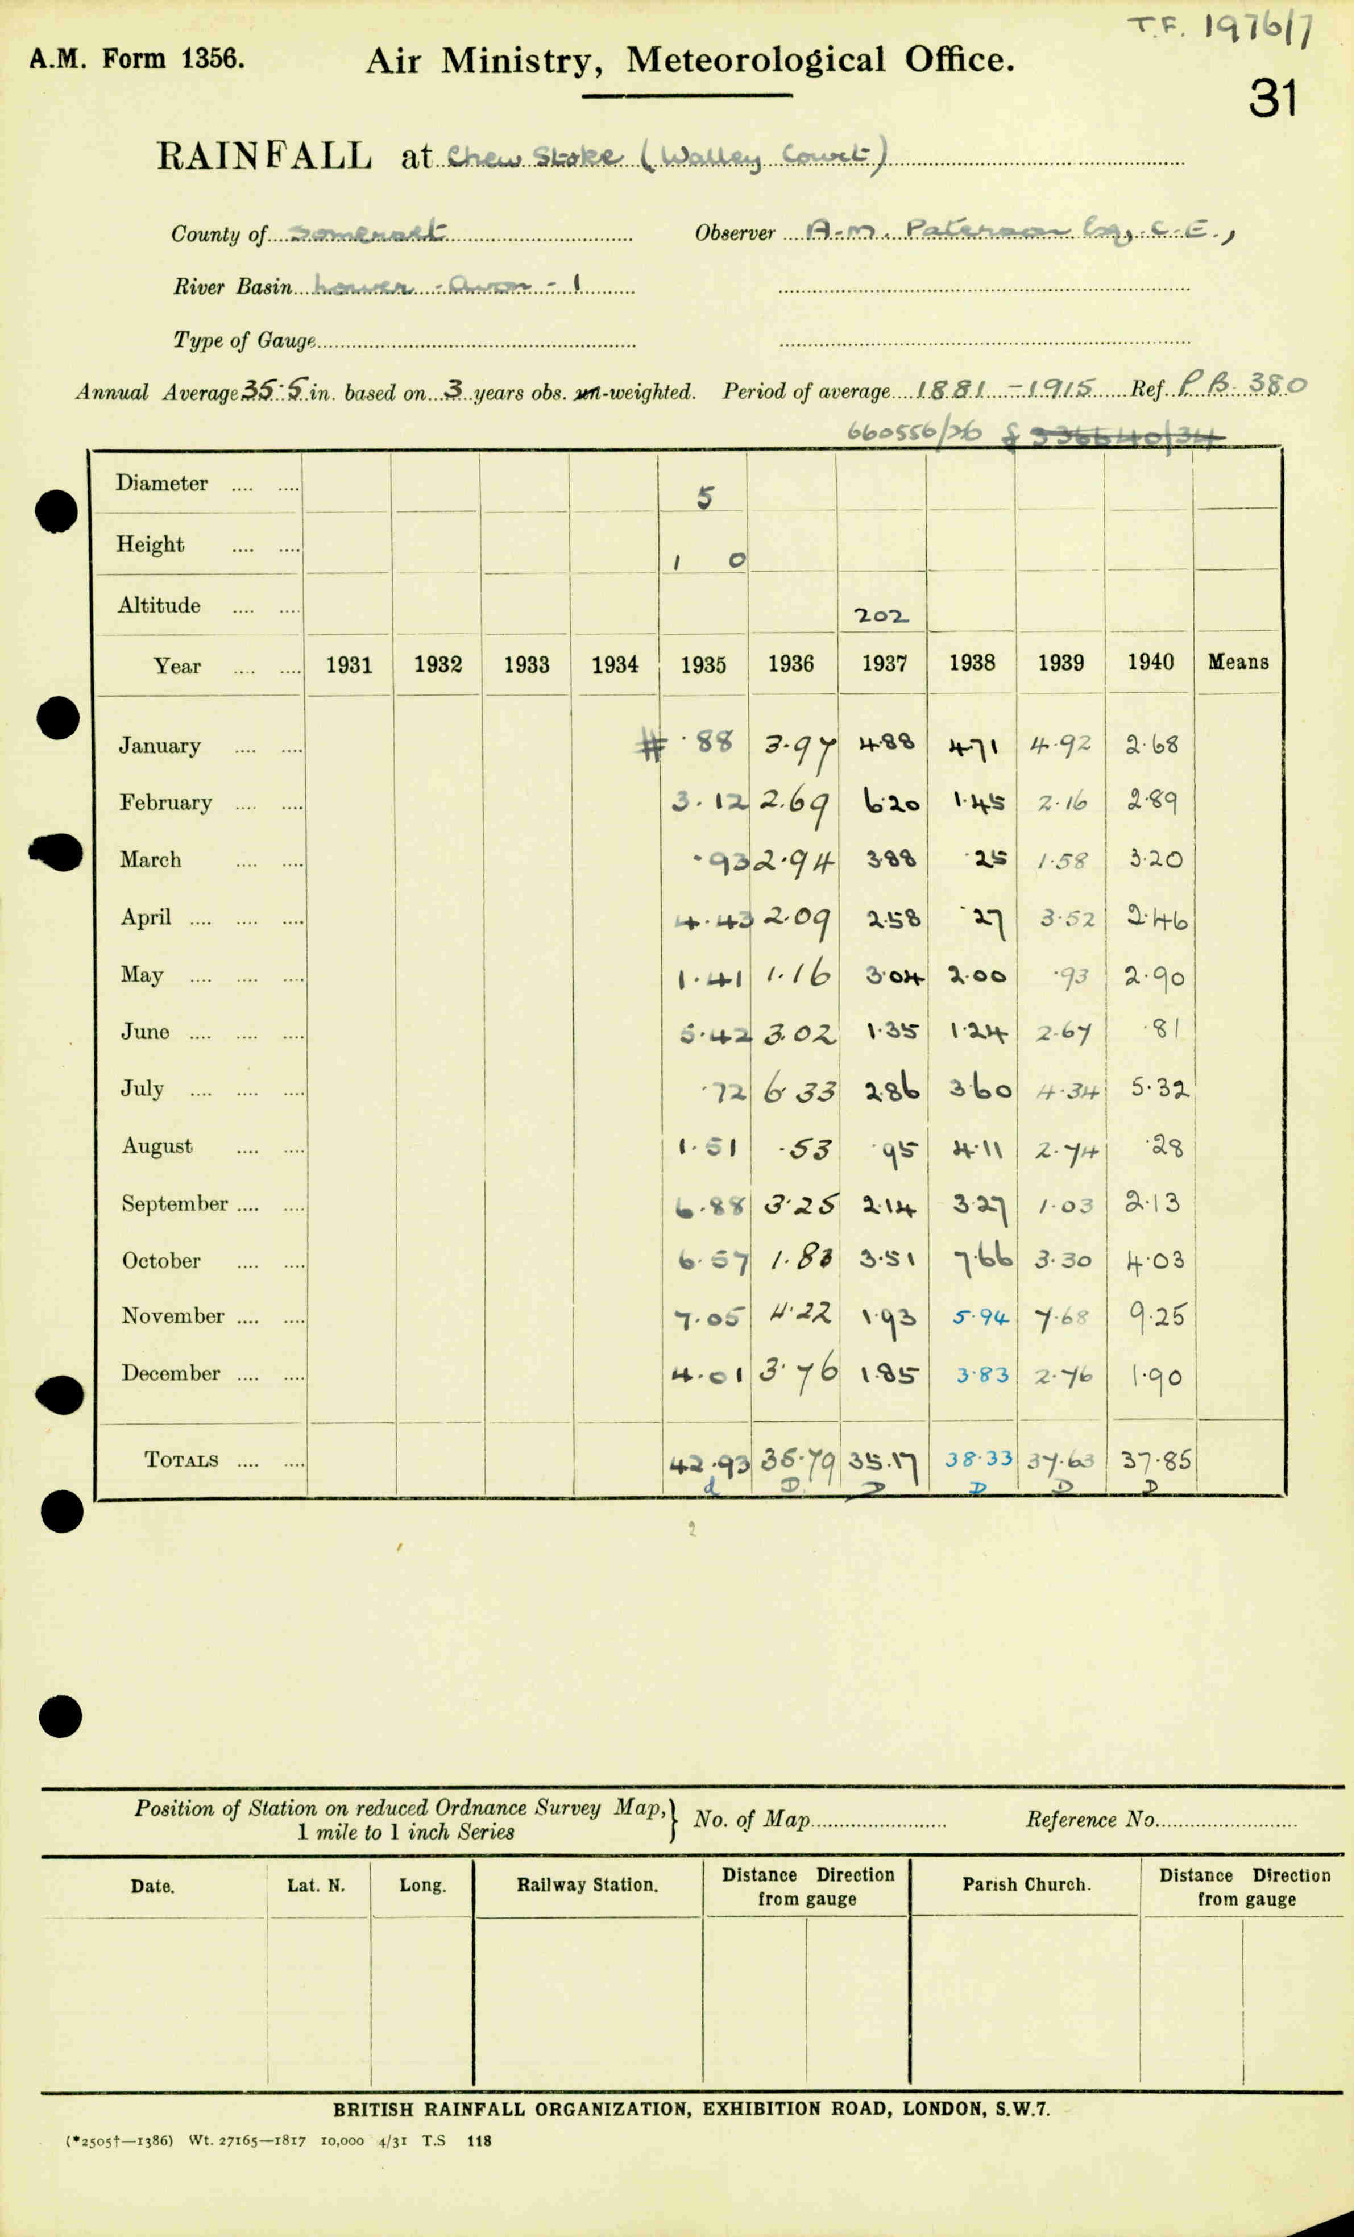 T.F. 1976/7
A.M. Form 1356. Air Ministry, Meteorological Office.
31
RAINFALL at Chew Stoke (Walley Court)
County of Somerset Observer A.M. Paterson Esq, C.E.,
River Basin Lower - Avon - 1
Type of Gauge
Annual Average 35.5 in. based on 3 years obs. un-weighted. Period of average 1881 - 1915 Ref. P.B. 380
660556/36 & 336640/34
Diameter .... .... 5
Height .... .... 1 0
Altitude .... .... 202
Year .... .... 1931 1932 1933 1934 1935 1936 1937 1938 1939 1940 Means
January .... .... # .88 3.97 4.88 4.71 4.92 2.68
February .... .... 3.12 2.69 6.20 1.45 2.16 2.89
March .... .... .93 2.94 3.88 .25 1.58 3.20
April .... .... .... 4.43 2.09 2.58 .27 3.52 2.46
May .... .... .... 1.41 1.16 3.04 2.00 .93 2.90
June .... .... .... 5.42 3.02 1.35 1.24 2.67 .81
July .... .... .... .72 6.33 2.86 3.60 4.34 5.32
August .... .... 1.51 .53 .95 4.11 2.74 .28
September .... .... 6.88 3.25 2.14 3.27 1.03 2.13
October .... .... 6.57 1.83 3.51 7.66 3.30 4.03
November .... .... 7.05 4.22 1.93 5.94 7.68 9.25
December .... .... 4.01 3.76 1.85 3.83 2.76 1.90
TOTALS .... .... 42.93 35.79 35.17 38.33 37.63 37.85
d D. D D D D
2
Position of Station on reduced Ordnance Survey Map, } No. of Map Reference No.
1 mile to 1 inch Series
Date. Lat. N. Long. Railway Station. Distance Direction from gauge Parish Church. Distance Direction from gauge
BRITISH RAINFALL ORGANIZATION, EXHIBITION ROAD, LONDON, S.W.7.
(*2505†—1386) Wt. 27165—1817 10,000 4/31 T.S 118